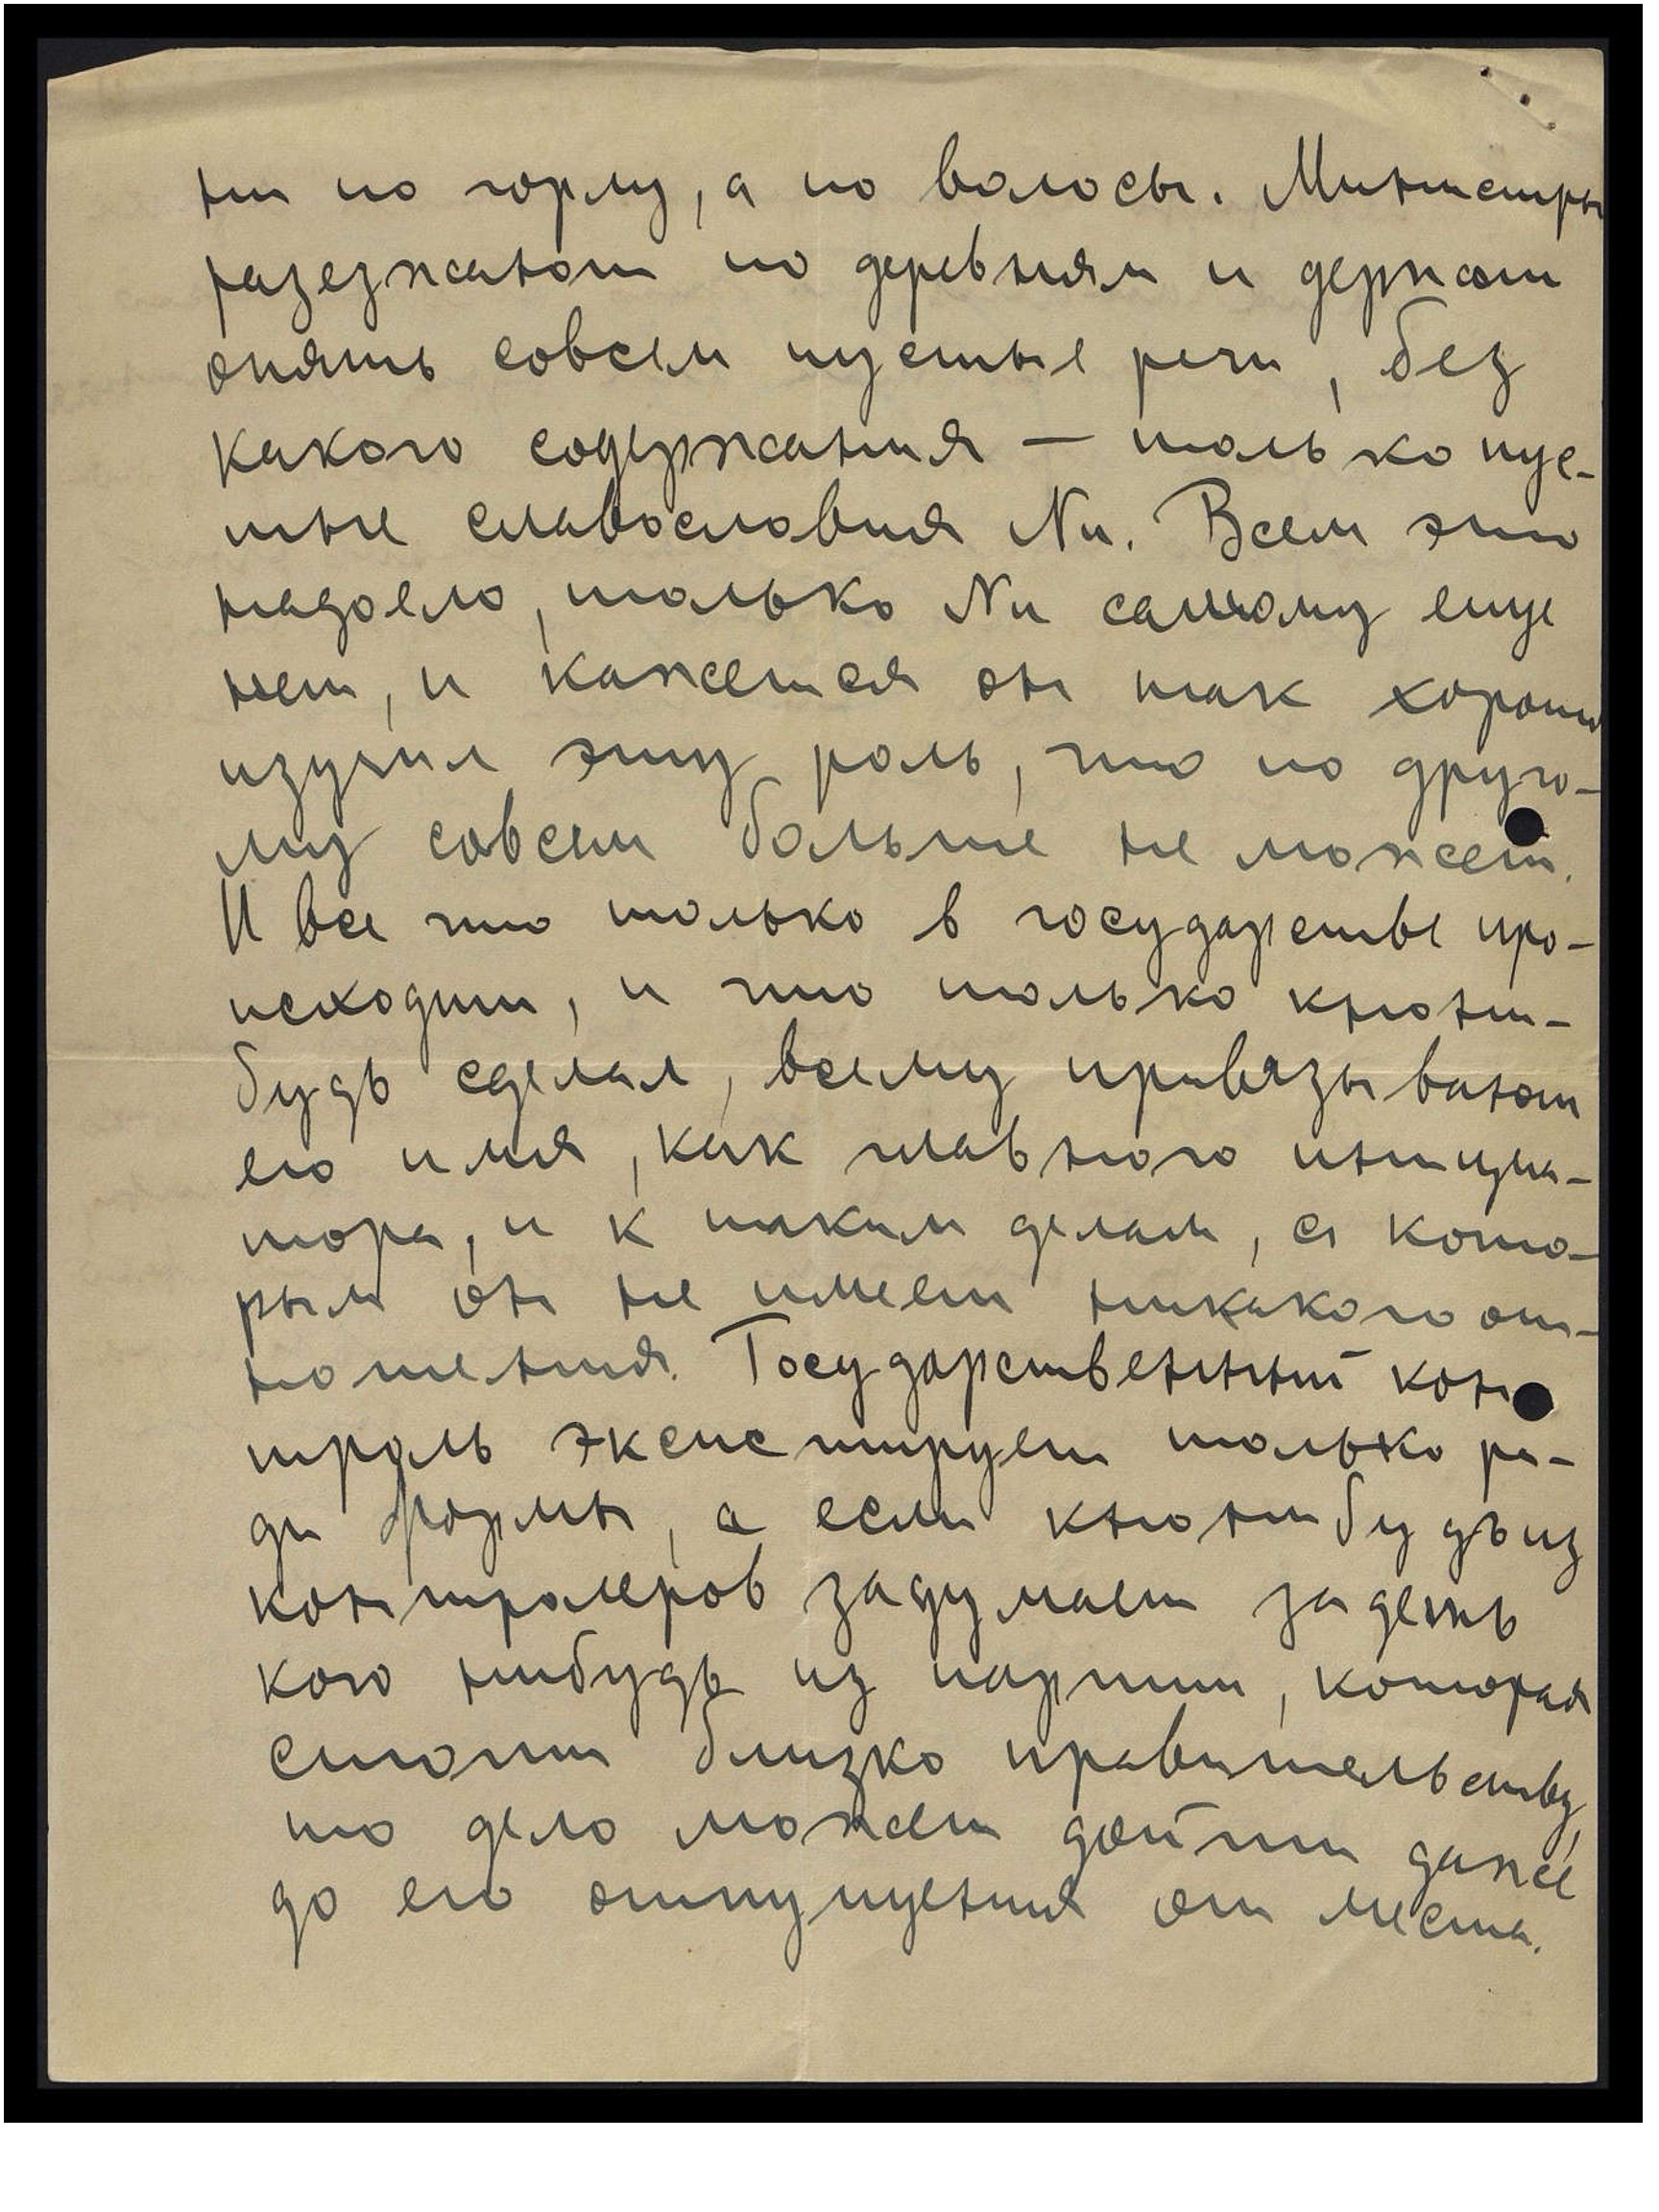 ни по горлу, а по волосы. Министры
разезжают по деревням и держат
опять совсем пустые речи, без
какого содержания — только пус-
тые славословия Nn. Всем это
надоело, только Nn самому еще
нет, и кажется он так хорошо
изучил эту роль, что по друго-
му совсем больше не может.
И все что только в государстве про-
исходит, и что только ктони-
будь сделал, всему привязывают
его имя, как главного инициа-
тора, и к таким делам, с кото-
рым он не имеет никакого от-
ношения. Государственный кон
троль экспстирует только ра-
ди формы, а если ктонибудь из
контролеров задумает задень
кого нибудь из партии, которая
стоит близко правительству,
то дело может дойти даже
до его отпущения от места.